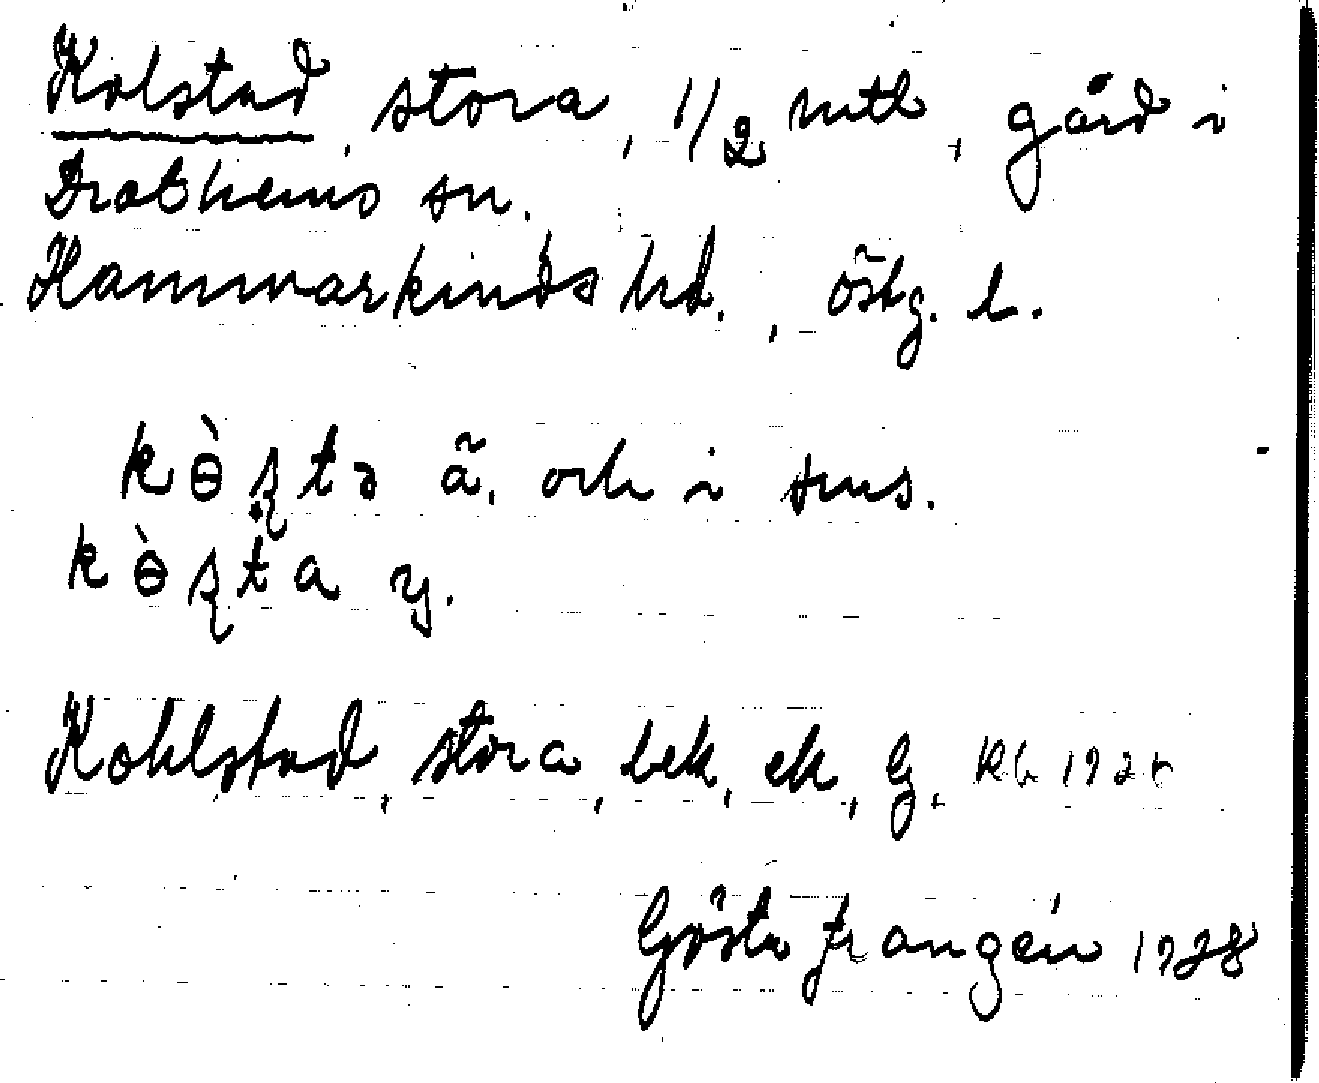 Kolstad, stora, 1/2 mtl, gård i
Drothems sn.
Hammarkinds hd., östg. l.
kɵ̀ʂtə ã. och i sms.
kɵ̀ʂta y.
Kohlstad, stora, bek, ek, G, Rb 1925
Gösta Frangén 1928